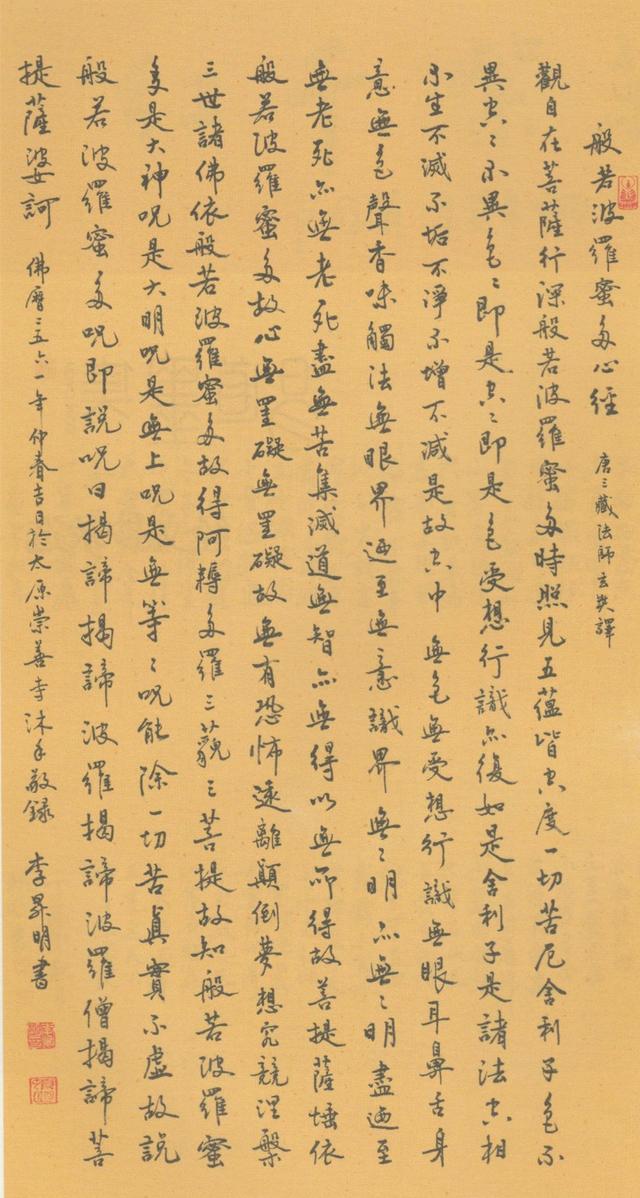 般若波羅蜜多心經 唐三藏法師玄奘譯
觀自在菩薩行深般若波羅蜜多時照見五蘊皆空度一切苦厄舍利子色不
異空〻不異色〻即是空〻即是色受想行識亦復如是舍利子是諸法空相
不生不滅不垢不淨不增不減是故空中無色無受想行識無眼耳鼻舌身
意無色聲香味觸法無眼界迺至無意識界無〻明亦無〻明盡迺至
無老死亦無老死盡無苦集滅道無智亦無得以無所得故菩提薩埵依
般若波羅蜜多故心無罣礙無罣礙故無有恐怖遠離顛倒夢想究竟涅槃
三世諸佛依般若波羅蜜多故得阿耨多羅三藐三菩提故知般若波羅蜜
多是大神呪是大明呪是無上呪是無等〻呪能除一切苦真實不虛故說
般若波羅蜜多呪即說呪曰揭諦揭諦波羅揭諦波羅僧揭諦菩
提薩婆訶 佛曆二五六一年仲春吉日於太原崇善寺沐手敬錄 李昇明書